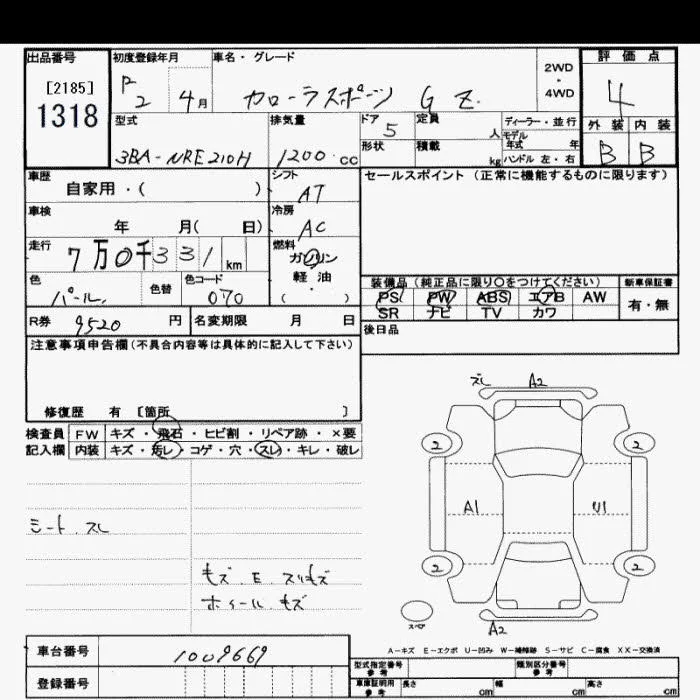 出品番号 初度登録年月 車名・グレード 2WD・4WD 評価点
[2185]
1318
R2 4月 カローラスポーツ G Z. 4
型式 排気量 ドア 定員 ディーラー・並行 外装 内装
3BA-NRE210H 1200 cc 5 人 モデル年式 年 B B
形状 積載 kg ハンドル 左・右
車歴 シフト セールスポイント (正常に機能するものに限ります)
自家用・( ) AT
車検 冷房
年 月( 日) AC
走行 燃料
7万0千331km ガソリン
軽・油
( ・ )
色 色替 色コード 装備品 (純正品に限り○をつけてください) 新車保証書
パール. 070 PS PW ABS エアB AW 有・無
SR ナビ TV カワ
R券 9520 円 名変期限 月 日 後日品
注意事項申告欄(不具合内容等は具体的に記入して下さい)
修復歴 有 [箇所 ]
検査員 FW キズ・飛石・ヒビ割・リペア跡・×要
記入欄 内装 キズ・汚レ・コゲ・穴・スレ・キレ・破レ
スレ A2
2 2
A1 U1
2 2
スペア A2
シート スレ
キズ. E. スリキズ
ホイール キズ
A-キズ E-エクボ U-凹み W-補修跡 S-サビ C-腐食 XX-交換済
車台番号 1009669
登録番号
型式指定番号 参考 類別区分番号 参考
車庫証明用 参考 長さ cm 幅 cm 高さ cm